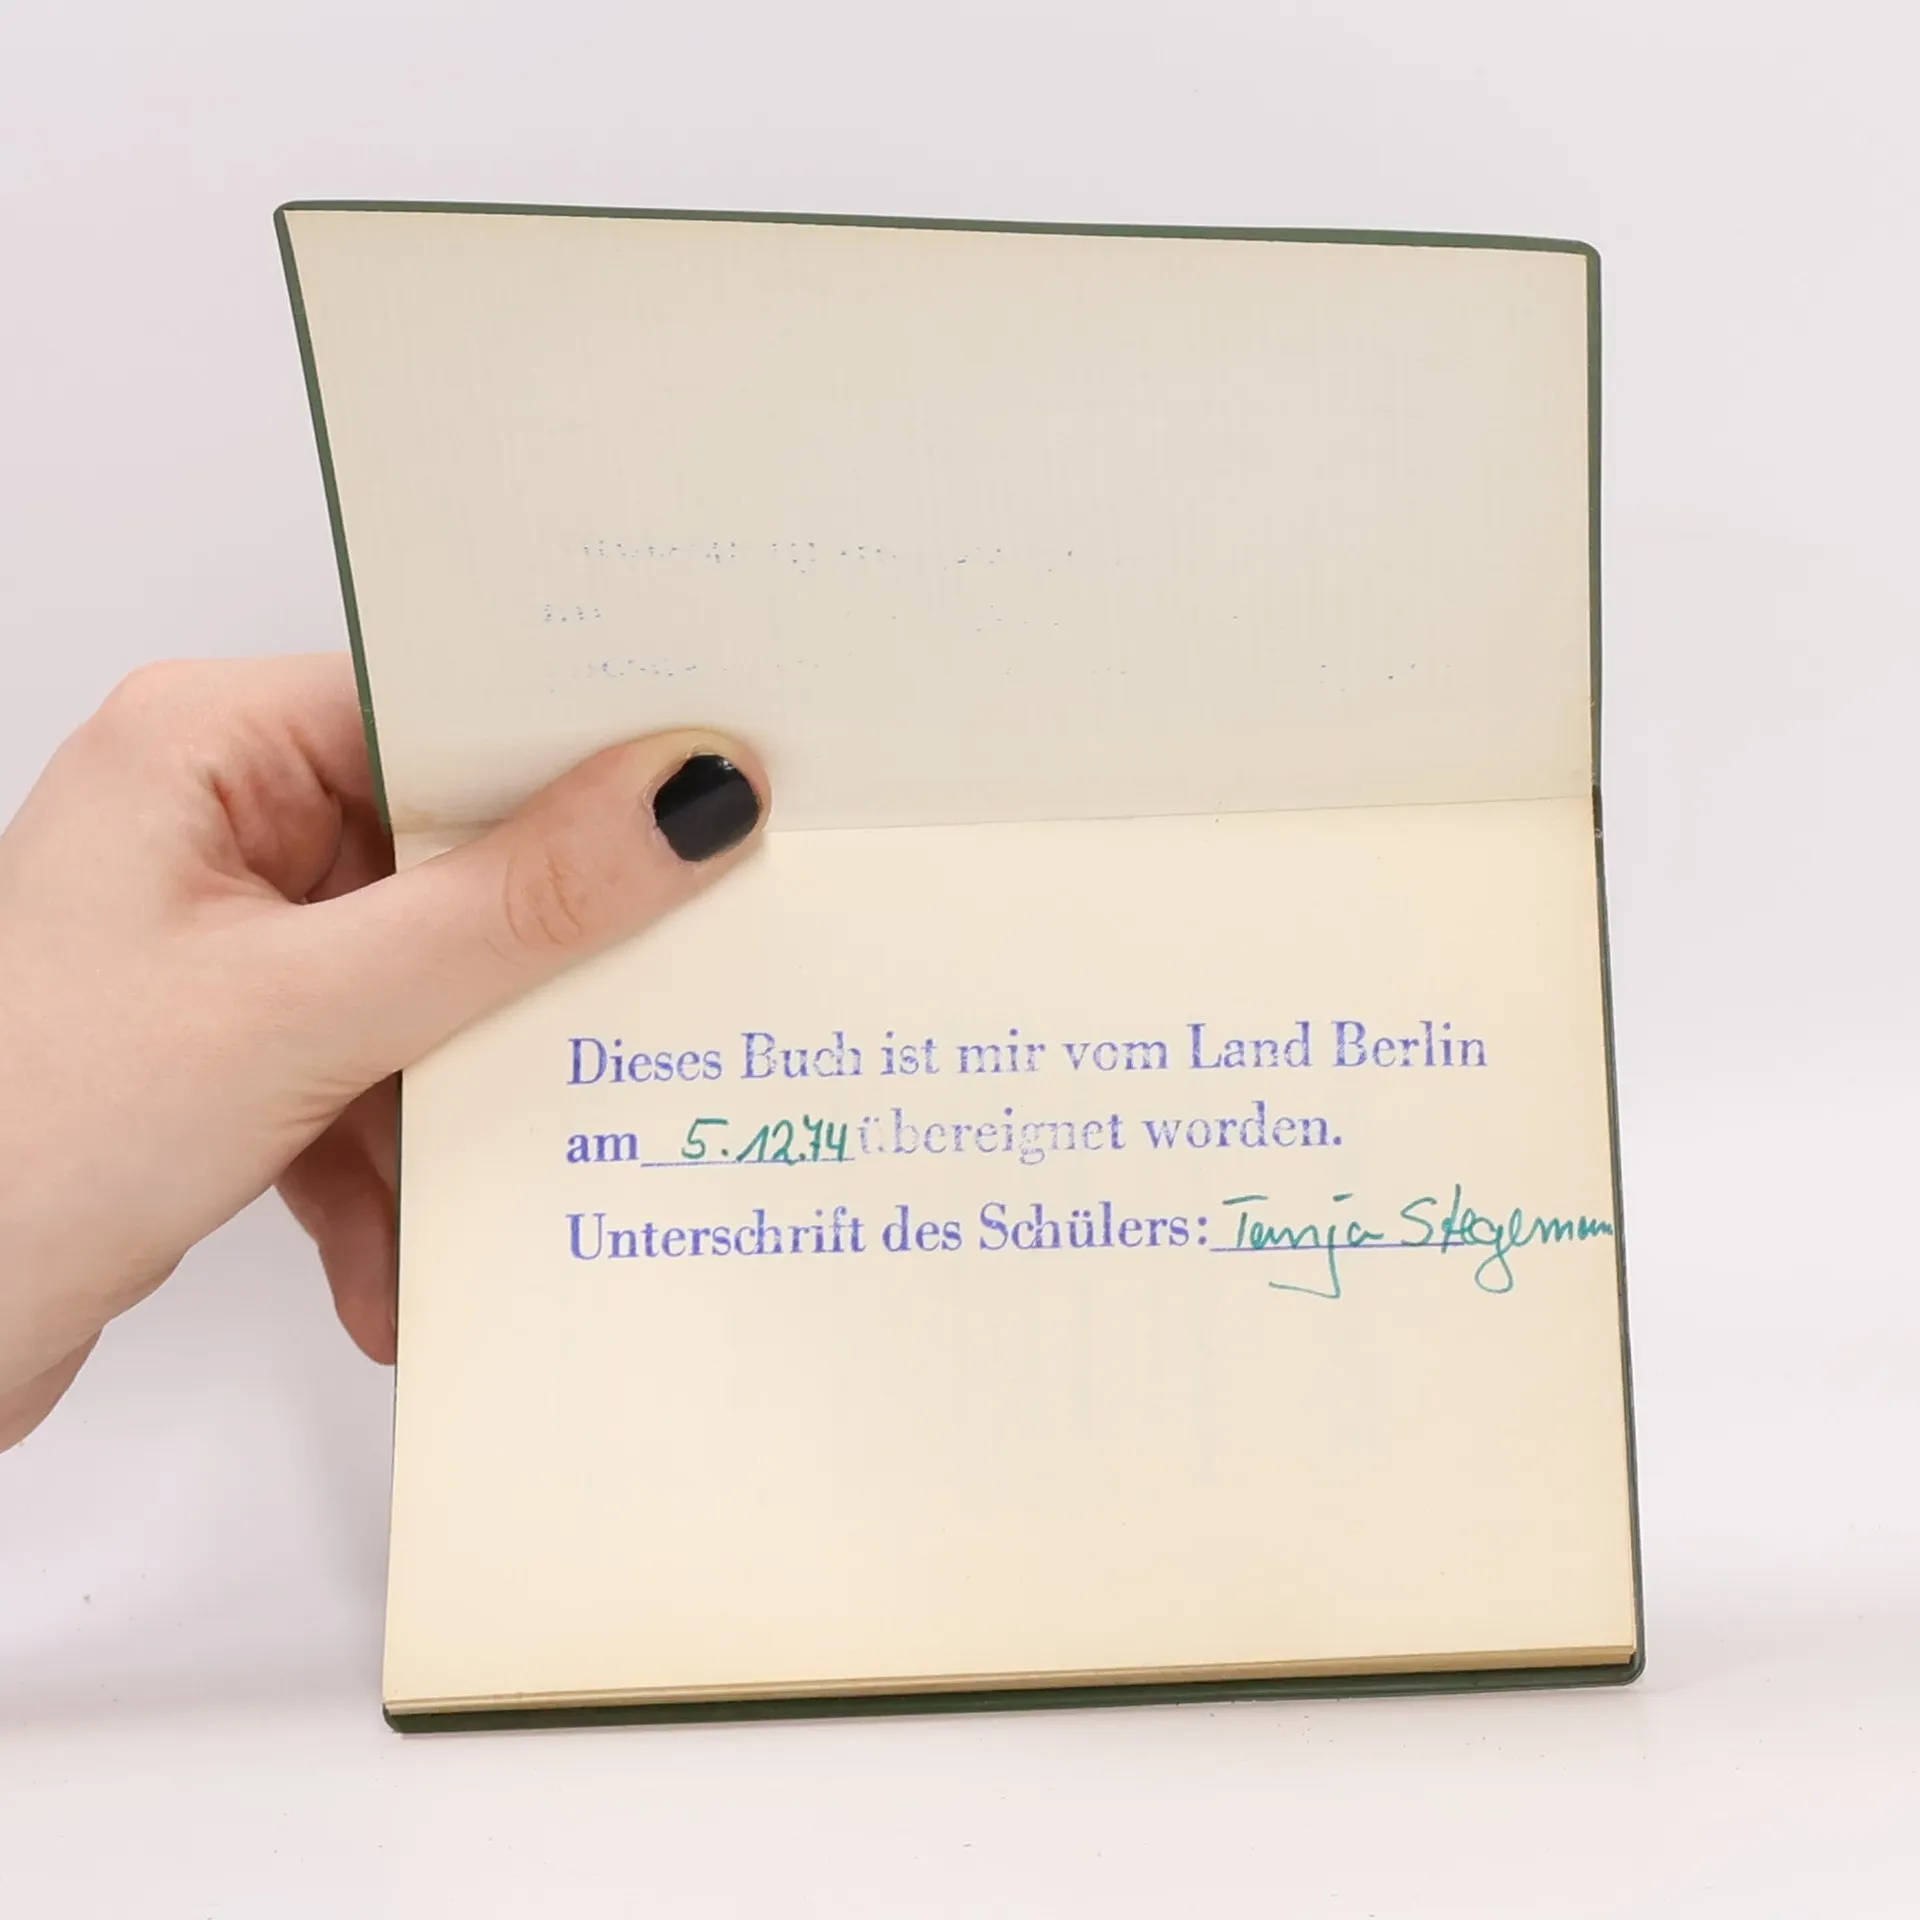 Dieses Buch ist mir vom Land Berlin
am 5.12.74 übereignet worden.
Unterschrift des Schülers: Tanja Stegemann